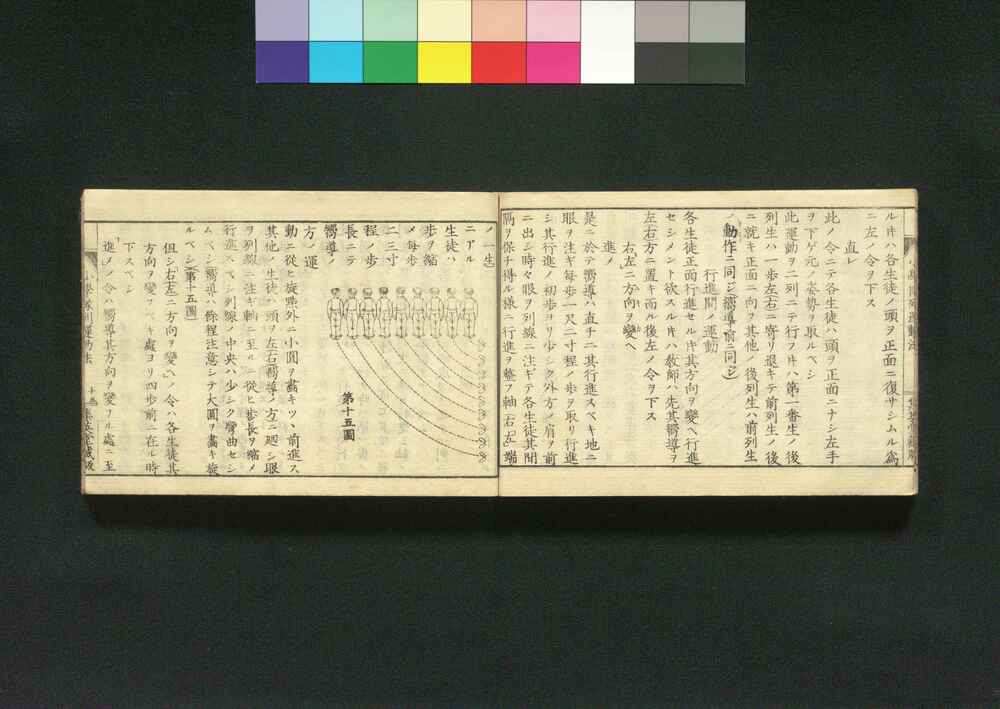 ルキハ各生徒ノ頭ヲ正面ニ復サシムル為
ニ左ノ令ヲ下ス
直レ
此ノ令ニテ各生徒ハ頭ヲ正面ニナシ左手
ヲ下ゲ元ノ姿勢ヲ取ルベシ
此運動ヲ二列ニテ行フキハ第一番生ノ後
列生ハ一歩左(右)ニ寄リ退キテ前列生ノ後
ニ就キ正面ニ向フ其他ノ後列生ハ前列生
ノ動作ニ同ジ(嚮導モ前ニ同ジ)
行進間ノ運動
各生徒正面行進セルキ其方向ヲ變ヘ行進
セシメント欲スルキハ教師ハ先其嚮導ヲ
左(右)方ニ置キ而ル後左ノ令ヲ下ス
右(左)ニ方向ヲ變ヘ
進メ
是ニ於テ嚮導ハ直チニ其行進スベキ地ニ
眼ヲ注ギ每歩一尺二寸程ノ歩ヲ取リ行進
シ其行進ノ初歩ヨリ少シク外方ノ肩ヲ前
ニ出シ時々眼ヲ列線ニ注ギテ各生徒其間
隔ヲ保チ得ル様ニ行進ヲ整フ軸(右左)端
ノ一生
ニアル
生徒ハ
歩ヲ縮
メ每歩
二三寸
程ノ歩
長ニテ
嚮導ノ
方ノ運
動ニ從ヒ旋點外ニ小圓ヲ畵キツヽ前進ス
其他ノ生徒ハ頭ヲ左(右)嚮導ノ方ニ廻シ眼
ヲ列線ニ注ギ軸ニ至ルニ從ヒ歩長ヲ縮メ
行進スベシ列線ノ中央ハ少シク彎曲セシ
ムベシ嚮導ハ餘程注意シテ大圓ヲ畵キ旋
ルベシ(第十五圖)
但シ右(左)ニ方向ヲ變ヘノ令ハ各生徒其
方向ヲ變フベキ處ヨリ四歩前ニ在ル時
下スベシ
進メノ令ハ嚮導其方向ヲ變フル處ニ至
第十五圖